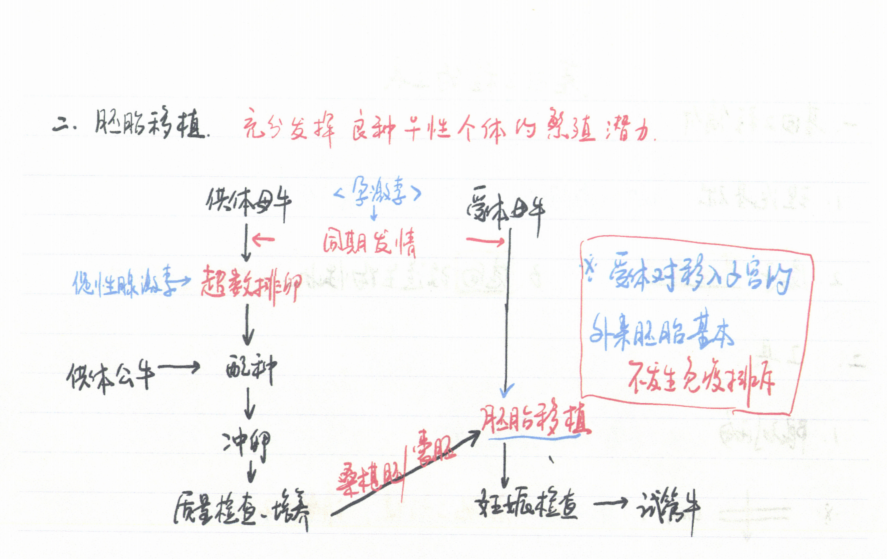 二. 胚胎移植. 充分发挥良种♀性个体的繁殖潜力.
供体母牛 <孕激素> 受体母牛
同期发情
促性腺激素→ 超数排卵
※ 受体对移入子宫的
外来胚胎基本
不发生免疫排斥
供体公牛→ 配种
胚胎移植
冲卵
桑椹胚/囊胚
质量检查、培养
妊娠检查→试管牛